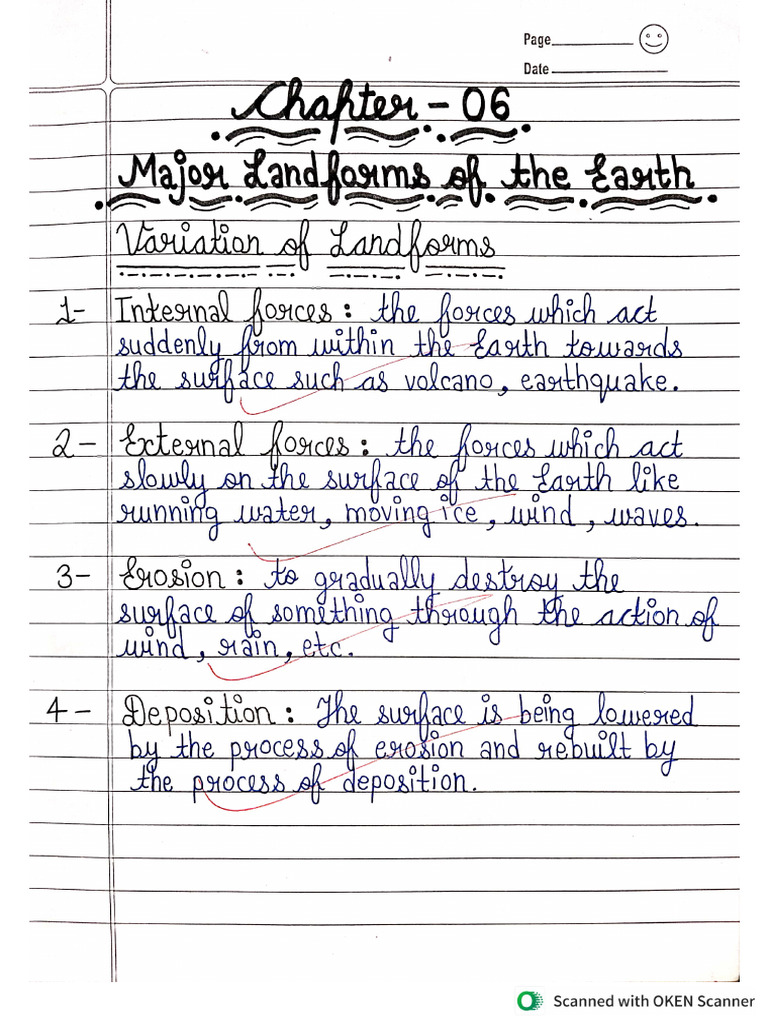 Page
Date
Chapter - 06
Major Landforms of the Earth
Variation of Landforms
1- Internal forces : the forces which act
suddenly from within the Earth towards
the surface such as volcano, earthquake.
2- External forces : the forces which act
slowly on the surface of the Earth like
running water, moving ice, wind, waves.
3- Erosion : to gradually destroy the
surface of something through the action of
wind, rain, etc.
4- Deposition : The surface is being lowered
by the process of erosion and rebuilt by
the process of deposition.
Scanned with OKEN Scanner